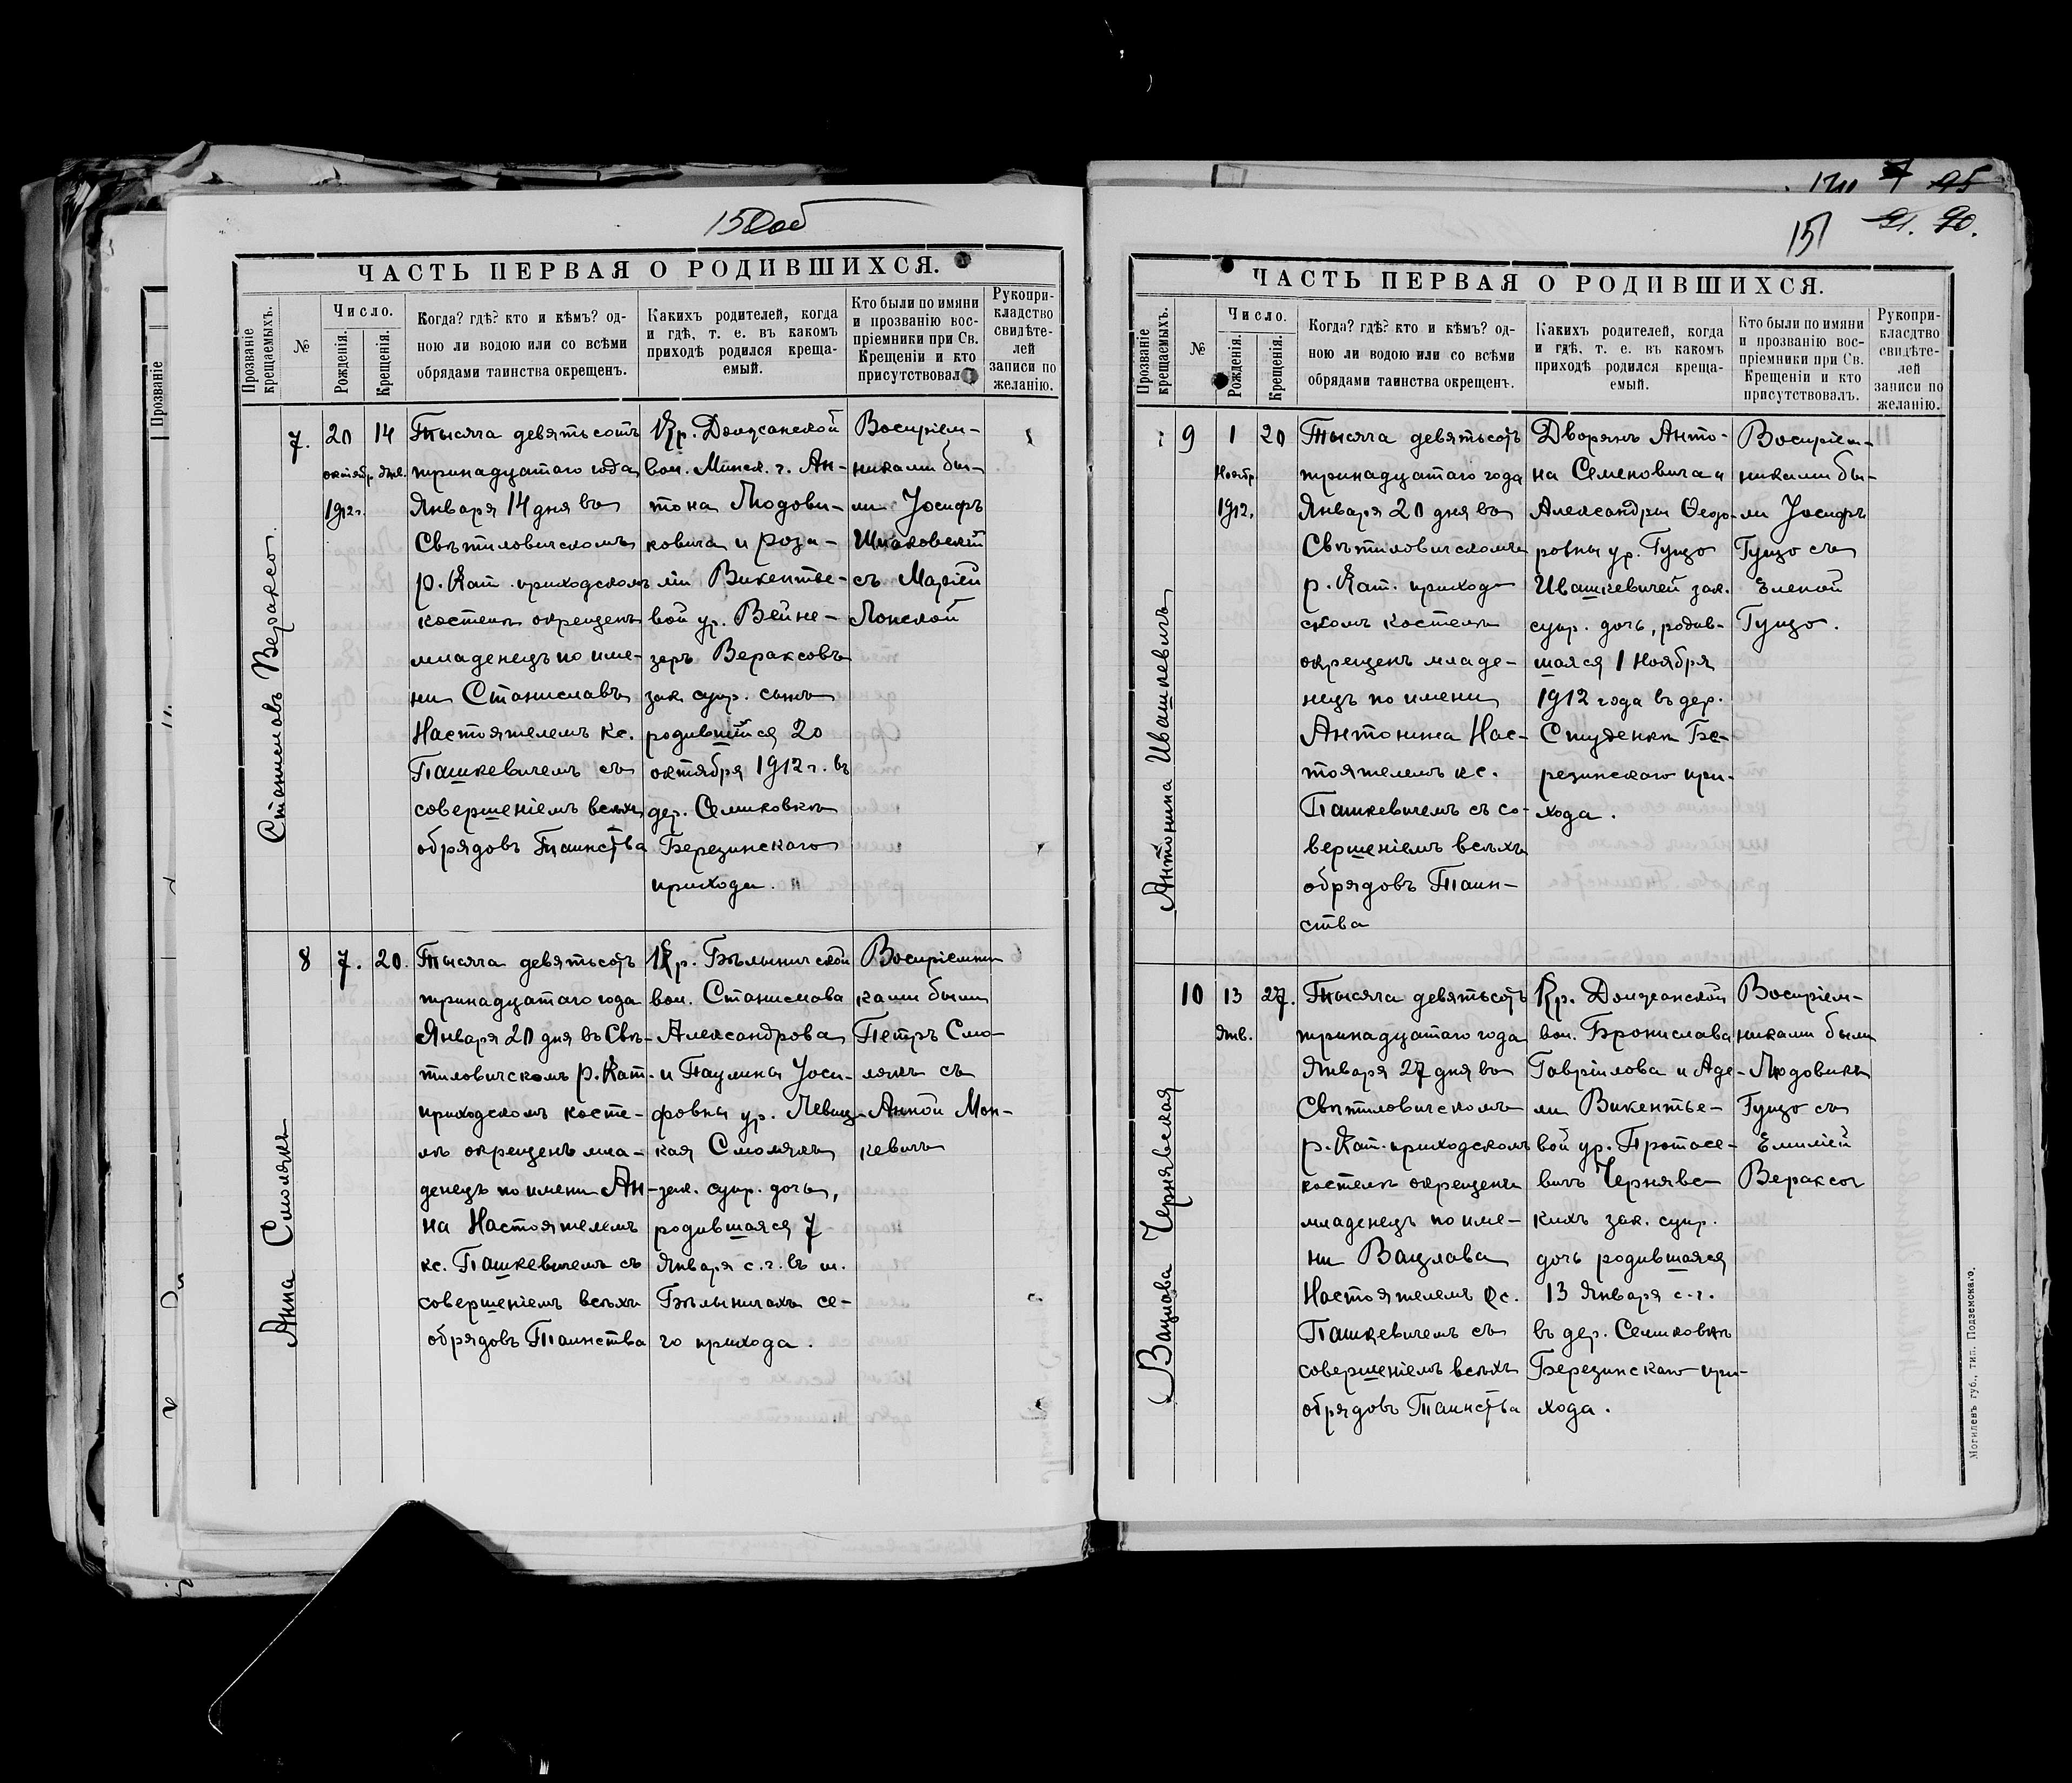 150об
ЧАСТЬ ПЕРВАЯ О РОДИВШИХСЯ.
Прозваніе крещаемыхъ.
№
Число.
Рожденія.
Крещенія.
Когда? гдѣ? кто и кѣмъ? од-
ною ли водою или со всѣми
обрядами таинства окрещенъ.
Какихъ родителей, когда
и гдѣ, т. е. въ какомъ
приходѣ родился креща-
емый.
Кто были по имяни
и прозванію вос-
пріемники при Св.
Крещеніи и кто
присутствовалъ
Рукопри-
кладство
свидѣте-
лей
записи по
желанію.
Станиславъ Вераксо
7.
20
октябр.
1912 г.
14
янв.
Тысяча девятьсотъ
тринадцатаго года
Января 14 дня въ
Свѣтиловичскомъ
р. Кат. приходскомъ
костелѣ окрещенъ
младенецъ по име-
ни Станиславъ
Настоятелемъ кс.
Пашкевичемъ съ
совершеніемъ всѣхъ
обрядовъ Таинства
Кр. Должанской
вол. Минск. г. Ан-
тона Людови-
ковича и Роза-
ліи Викентье-
вой ур. Вейне-
зеръ Вераксовъ
зак. супр. сынъ
родившійся 20
октября 1912 г. въ
дер. Селиковкѣ
Березинскаго
прихода.
Воспріем-
никами бы-
ли Іосифъ
Шпаковскій
съ Маріей
Лонской
Анна Смолякъ
8
7.
20.
Тысяча девятьсотъ
тринадцатаго года
Января 20 дня въ Свѣ-
тиловичскомъ р. Кат.
приходскомъ косте-
лѣ окрещенъ мла-
денецъ по имени Ан-
на Настоятелемъ
кс. Пашкевичемъ съ
совершеніемъ всѣхъ
обрядовъ Таинства
Кр. Бѣлыничской
вол. Станислава
Александрова
и Паулины Іоси-
фовны ур. Левиц-
кая Смолякъ
зак. супр. дочь,
родившаяся 7
Января с. г. въ м.
Бѣлыничахъ се-
го прихода.
Воспріемни
ками были
Петръ Смо-
лякъ съ
Анной Мон-
кевичъ
151
ЧАСТЬ ПЕРВАЯ О РОДИВШИХСЯ.
Прозваніе крещаемыхъ.
№
Число.
Рожденія.
Крещенія.
Когда? гдѣ? кто и кѣмъ? од-
ною ли водою или со всѣми
обрядами таинства окрещенъ.
Какихъ родителей, когда
и гдѣ, т. е. въ какомъ
приходѣ родился креща-
емый.
Кто были по имяни
и прозванію вос-
пріемники при Св.
Крещеніи и кто
присутствовалъ.
Рукопри-
класдтво
свидѣте-
лей
записи по
желанію.
Антонина Ивашкевичъ
9
1
Ноябр.
1912.
20
Тысяча девятьсотъ
тринадцатаго года
Января 20 дня въ
Свѣтиловичскомъ
р. Кат. приход
скомъ костелѣ
окрещенъ младе-
нецъ по имени
Антонина Нас-
тоятелемъ кс.
Пашкевичемъ съ со-
вершеніемъ всѣхъ
обрядовъ Таин-
ства
Дворянъ Анто-
на Семеновича и
Александры Ѳедо-
ровны ур. Гуцзо
Ивашкевичей зак.
супр. дочь, родив-
шаяся 1 Ноября
1912 года въ дер.
Студенкѣ Бе-
резинскаго при-
хода.
Воспріем-
никами бы-
ли Іосифъ
Гуцзо съ
Еленой
Гуцзо.
Вацлава Чернявская
10
13
Янв.
27.
Тысяча девятьсотъ
тринадцатаго года
Января 27 дня въ
Свѣтиловичскомъ
р. Кат. приходскомъ
костелѣ окрещенъ
младенецъ по име-
ни Вацлава
Настоятелемъ кс.
Пашкевичемъ съ
совершеніемъ всѣхъ
обрядовъ Таинства
Кр. Должанской
вол. Бронислава
Гавріилова и Аде-
ли Викентье-
вой ур. Протасе-
вичъ Чернявс-
кихъ зак. супр.
дочь родившаяся
13 Января с. г.
въ дер. Селиковкѣ
Березинскаго при-
хода.
Воспріем-
никами были
Людовикъ
Гуцзо съ
Емиліей
Вераксо
Могилевъ губ., тип. Подземскаго.